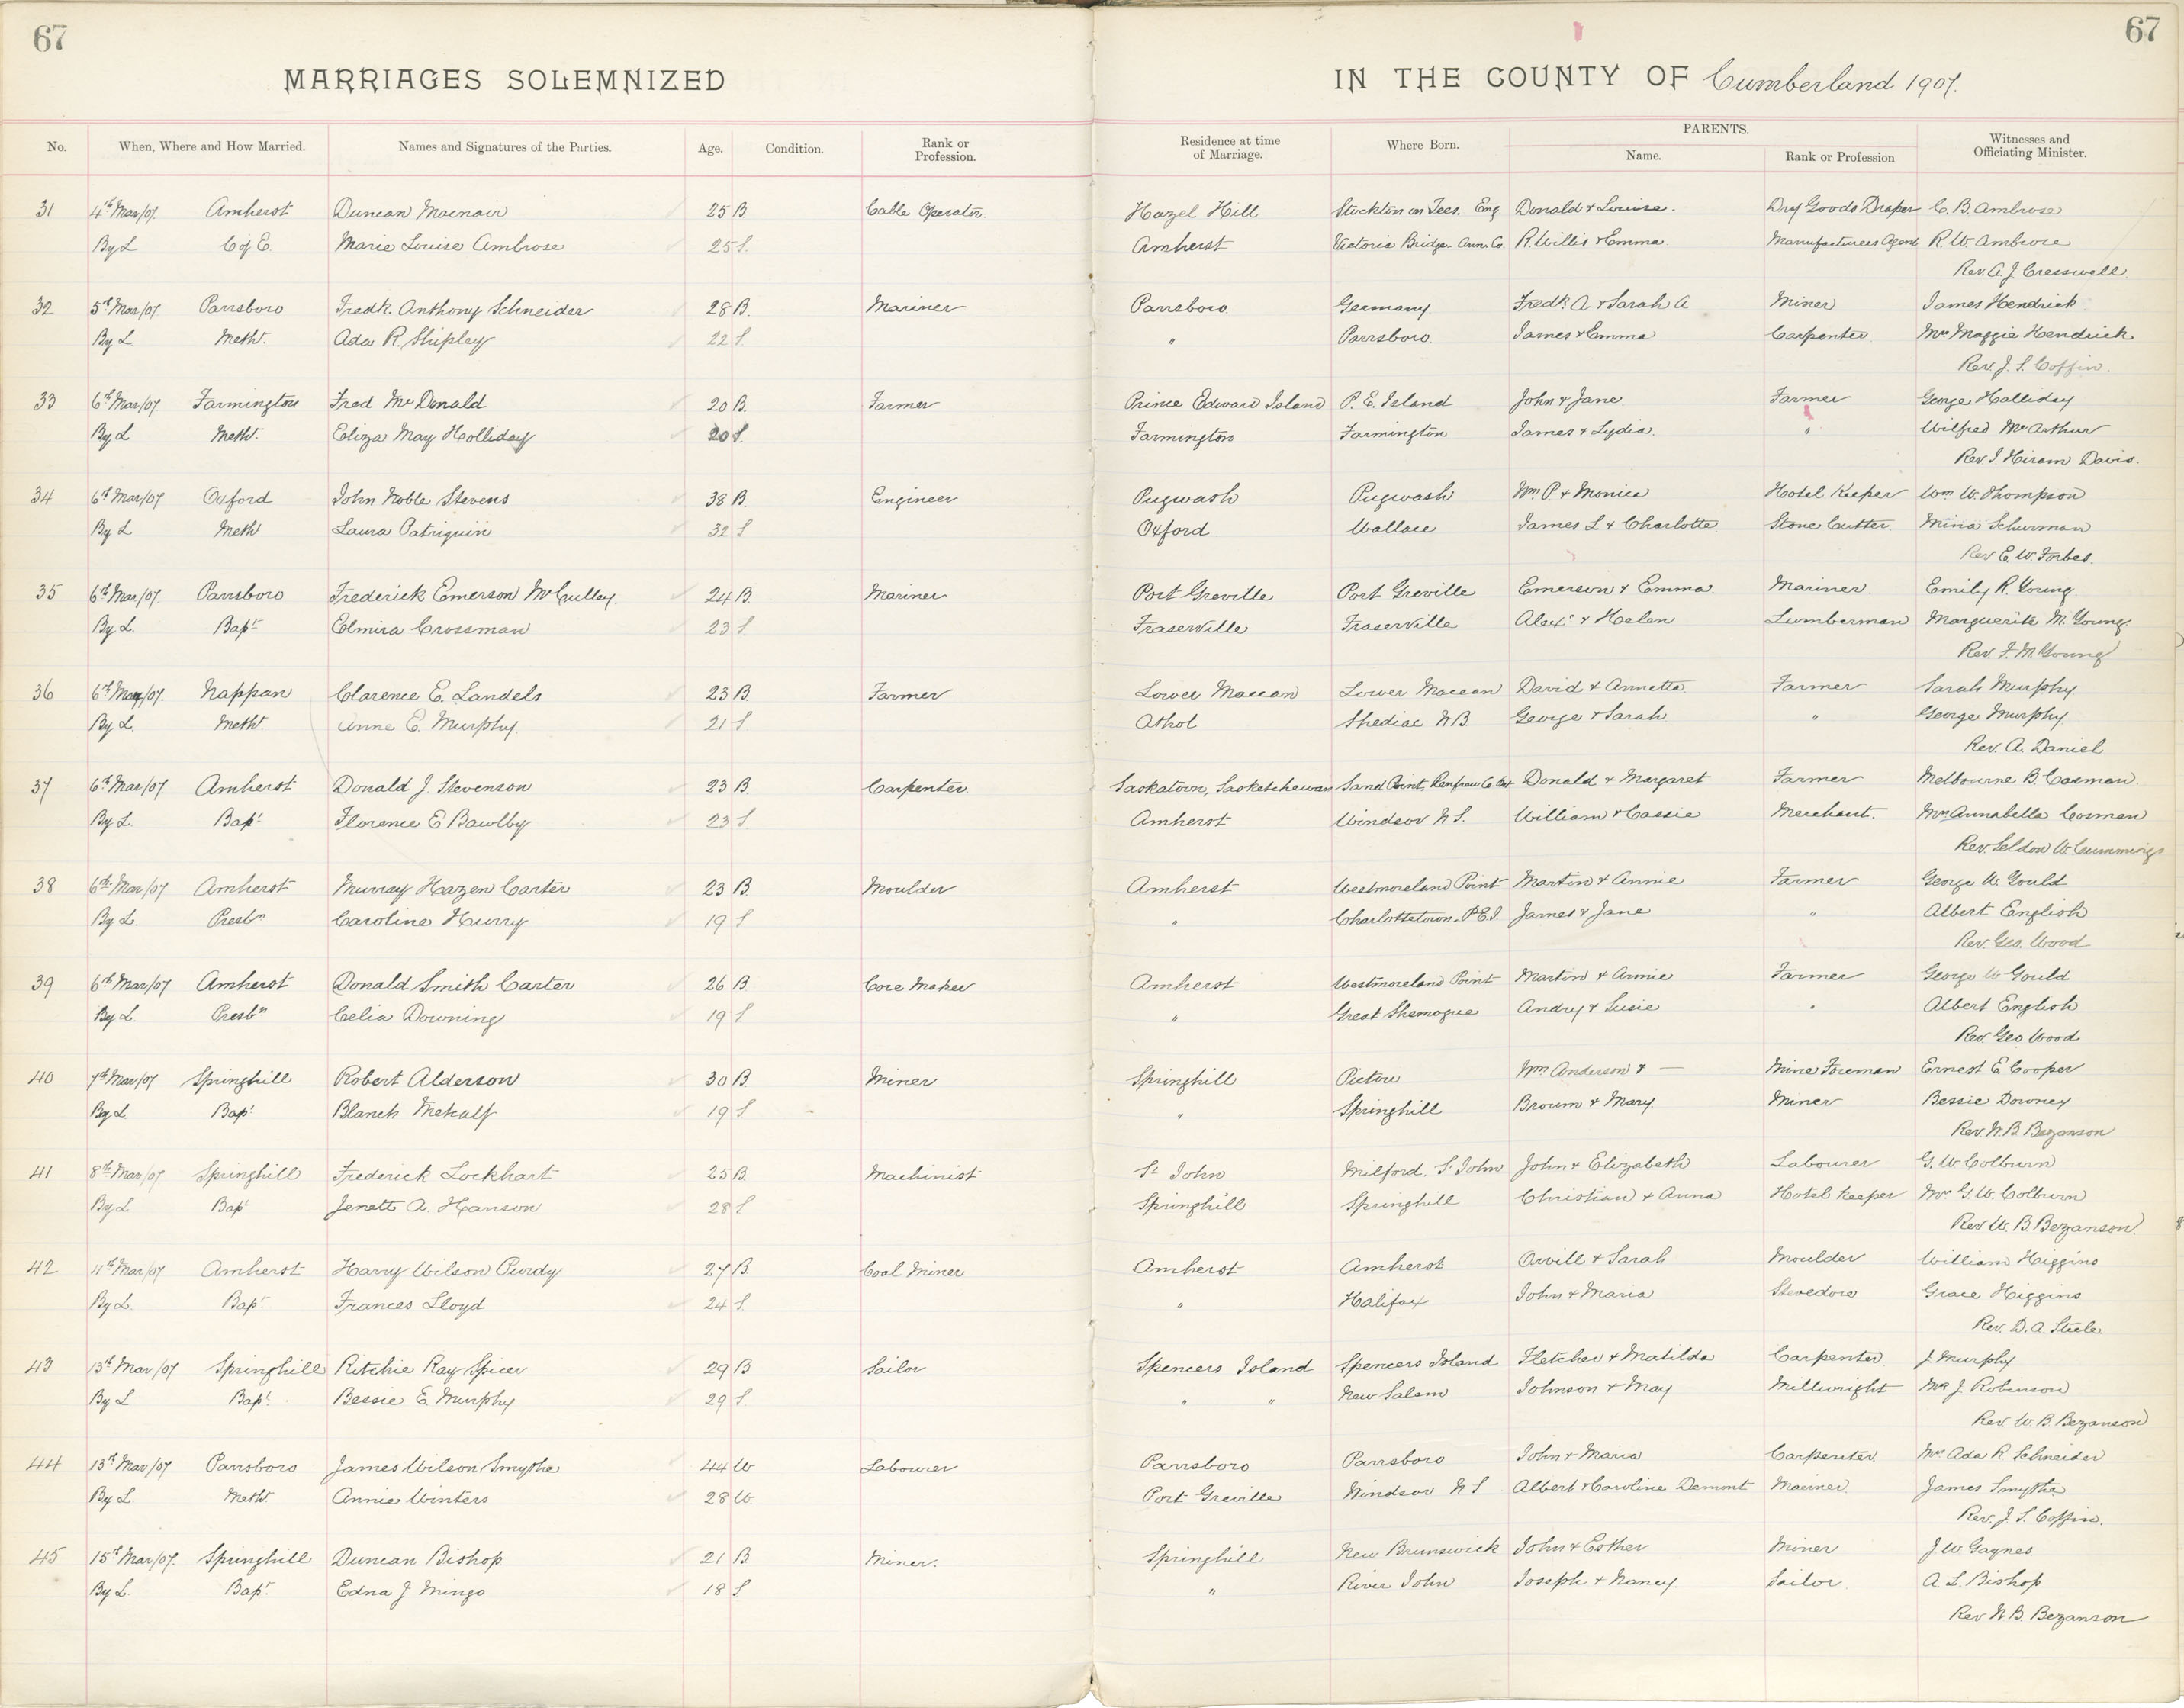 67
67
MARRIAGES SOLEMNIZED IN THE COUNTY OF Cumberland 1907.
No. When, Where and How Married. Names and Signatures of the Parties. Age. Condition. Rank or Profession. Residence at time of Marriage. Where Born. PARENTS. Name. Rank or Profession Witnesses and Officiating Minister.
31 4th Mar/07. Amherst Duncan Macnair 25 B Cable Operator. Hazel Hill Stockton on Tees. Eng Donald & Louise. Dry Goods Draper C. B. Ambrose
By L C of E. Marie Louise Ambrose 25 S. Amherst Victoria Bridge Ann. Co. R. Willis & Emma. Manufacturers Agent R. W. Ambrose
Rev. A. J. Cresswell
32 5th Mar/07 Parrsboro Fredk. Anthony Schneider 28 B. Mariner Parrsboro Germany Fredk. A & Sarah A Miner James Hendrick
By L Meth. Ada R. Shipley 22 S. " Parrsboro. James & Emma Carpenter Mrs Maggie Hendrick
Rev. J. S. Coffin.
33 6th Mar/07. Farmington Fred McDonald 20 B. Farmer Prince Edward Island P. E. Island John & Jane. Farmer George Halliday
By L Meth. Eliza May Holliday 20 S. Farmington Farmington James & Lydia. " Wilfred McArthur
Rev. J. Hiram Davis.
34 6th Mar/07 Oxford John Noble Stevens 38 B. Engineer Pugwash Pugwash Wm P. & Monica Hotel Keeper Wm W. Thompson
By L Meth Laura Patriquin 32 S Oxford Wallace James L & Charlotte Stone Cutter. Mina Schurman
Rev E. W. Forbes.
35 6th Mar/07. Parrsboro Frederick Emerson McCulley. 24 B. Mariner Port Greville Port Greville Emerson & Emma Mariner Emily R. Young
By L. Bapt Elmira Crossman 23 S Fraserville Fraserville Alexr. & Helen Lumberman Marguerite M. Young
Rev. F. M. Young
36 6th Mar/07. Nappan Clarence E. Landels 23 B. Farmer Lower Maccan Lower Maccan David & Annetta Farmer Sarah Murphy
By L. Meth. Anne E. Murphy. 21 S. Athol Shediac N B George & Sarah " George Murphy
Rev. A. Daniel
37 6th Mar/07 Amherst Donald J. Stevenson 23 B. Carpenter. Saskatoon, Saskatchewan Sand Point, Renfrew Co. Ont Donald & Margaret Farmer Melbourne B. Cosman.
By L. Bapt Florence E Bawlby 23 S Amherst Windsor N S. William & Cassie Merchant. Mrs Annabella Cosman
Rev. Seldon W. Cummings
38 6th Mar/07 Amherst Murray Hazen Carter 23 B Moulder Amherst Westmoreland Point Martin & Annie Farmer George W. Gould
By L. Presbn Caroline Hurry 19 S " Charlottetown. P E I. James & Jane " Albert English
Rev. Geo. Wood
39 6th Mar/07 Amherst Donald Smith Carter 26 B Core Maker Amherst Westmoreland Point Martin & Annie Farmer George W Gould
By L. Presbn Celia Downing 19 S " Great Shemogue Andry & Susie " Albert English
Rev. Geo Wood
40 7th Mar/07 Springhill Robert Alderson 30 B. Miner Springhill Pictou Wm Anderson & — Mine Foreman Ernest E. Cooper
By L Bapt Blanch Metcalf 19 S " Springhill Broum & Mary. Miner Bessie Downey
Rev. W. B. Bezanson
41 8th Mar/07 Springhill Frederick Lockhart 25 B. Machinist St. John Milford. St John John & Elizabeth Labourer G. W Colburn
By L Bapt Jenett A. Hanson 28 S. Springhill Springhill Christian & Anna Hotel Keeper Mrs G. W. Colburn
Rev W. B. Bezanson.
42 11th Mar/07 Amherst Harry Wilson Purdy 27 B. Coal Miner Amherst Amherst Orvill & Sarah Moulder William Higgins
By L. Bapt Frances Lloyd 24 S. " Halifax John & Maria Stevedore Grace Higgins
Rev. D. A. Steele
43 13th Mar/07 Springhill Ritchie Ray Spicer 29 B Sailor Spencers Island Spencers Island Fletcher & Matilda Carpenter J Murphy
By L Bapt. Bessie E. Murphy 29 S. " " New Salem Johnson & May Millwright Mrs J. Robinson
Rev. W. B. Bezanson
44 13th Mar/07 Parrsboro James Wilson Smythe 44 W Labourer Parrsboro Parrsboro John & Maria Carpenter. Mrs Ada R. Schneider
By L. Meth. Annie Winters 28 W. Port Greville Windsor N S Albert & Caroline Demont Mariner. James Smythe
Rev. J. S. Coffin.
45 15th Mar/07. Springhill Duncan Bishop 21 B Miner. Springhill New Brunswick John & Esther Miner J. W Gaynes
By L. Bapt. Edna J Mingo 18 S " River John Joseph & Nancy. Sailor A. L. Bishop
Rev W. B. Bezanson